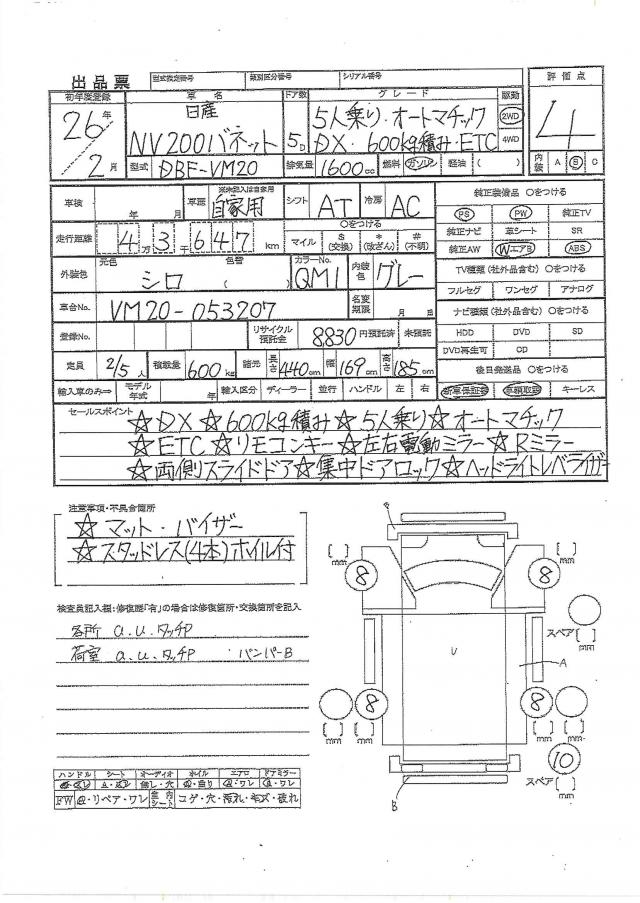 出品票 型式指定番号 類別区分番号 シリアル番号 評価点
初年度登録 車名 ドア数 グレード 駆動
26年 日産 5人乗り・オートマチック 2WD 4
2月 NV200バネット 5D DX・600kg積み・ETC 4WD
型式 DBF-VM20 排気量 1600cc 燃料 ガソリン 軽油 ( ) 内装 A B C
車検 年 月 車歴 ※未記入は自家用 自家用 シフト AT 冷房 AC 純正装備品 ○をつける
PS PW 純正TV
走行距離 4万3千647km ○をつける マイル $(交換) *(改ざん) #(不明) 純正ナビ 革シート SR
純正AW WエアB ABS
外装色 元色 シロ 色替 ( ) カラーNo. QM1 内装色 グレー TV種類(社外品含む) ○をつける
フルセグ ワンセグ アナログ
車台No. VM20-053207 名変期限 月 日 ナビ種類(社外品含む) ○をつける
登録No. リサイクル預託金 8830円預託済 未預託 HDD DVD SD
DVD再生可 CD
定員 2/5人 積載量 600kg 諸元 長さ440cm 幅169cm 高さ185cm 後日発送品 ○をつける
輸入車のみ⇒ モデル年式 年 輸入区分 ディーラー 並行 ハンドル 左 右 新車保証書 車輌取説 キーレス
セールスポイント
☆DX☆600kg積み☆5人乗り☆オートマチック
☆ETC☆リモコンキー☆左右電動ミラー☆Rミラー
☆両側スライドドア☆集中ドアロック☆ヘッドライトレベライザー
注意事項・不具合箇所
☆マット・バイザー
☆スタッドレス(4本)ホイル付
検査員記入欄:修復歴「有」の場合は修復箇所・交換箇所を記入
各所 a.u.タッチP
荷室 a.u.タッチP バンパーB
8 8
mm mm
スペア mm
U A
8 8
mm mm mm mm
10
スペア mm
B
ハンドル シート オーディオ ホイル エアロ ドアミラー
無し・穴
FW リペア・ワレ 室内シート コゲ・穴・汚れ・キズ・破れ